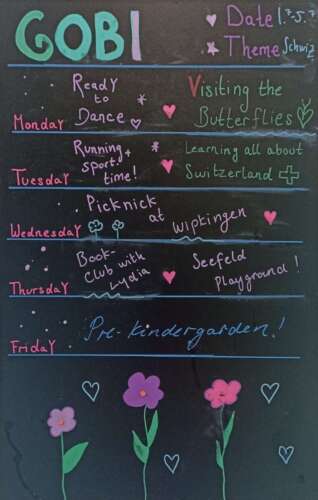 GOBI
Date 1.7-5.7
Theme Schwiz
Monday
Ready
to
Dance
Visiting the
Butterflies
Tuesday
Running +
sport
time!
Learning all about
Switzerland
Wednesday
Picknick
at
Wipkingen
Thursday
Book-
Club with
Lydia
Seefeld
Playground!
Friday
Pre-kindergarden!